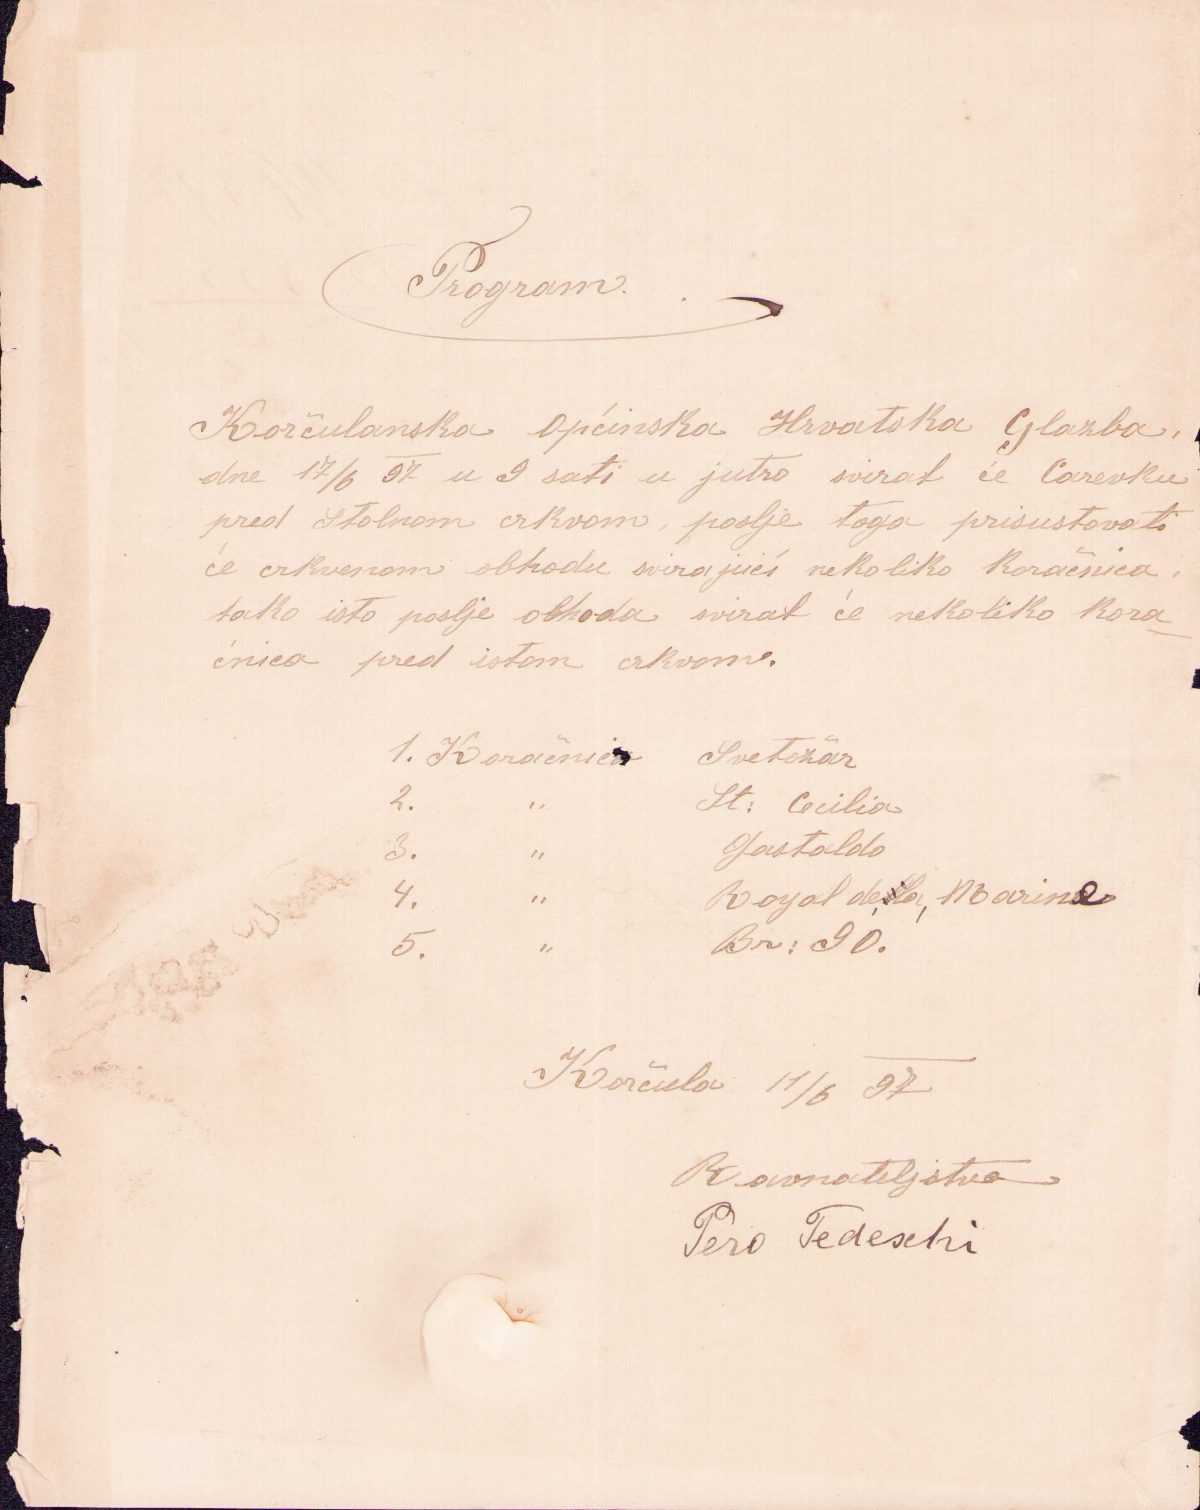 Program.
Korčulanska Općinska Hrvatska Glazba,
dne 17/6 97 u 9 sati u jutro svirat će Carevku
pred Stolnom crkvom, poslje toga prisustovati
će crkvenom obhodu svirajući nekoliko koračnica,
tako isto poslje obhoda svirat će nekoliko kora
čnica pred istom crkvom.
1. Koračnica Svetožar
2. " St: Cecilia
3. " Gastaldo
4. " Royal de la Marine
5. " Br: 90.
Korčula 11/6 97
Ravnateljstvo
Pero Tedeschi